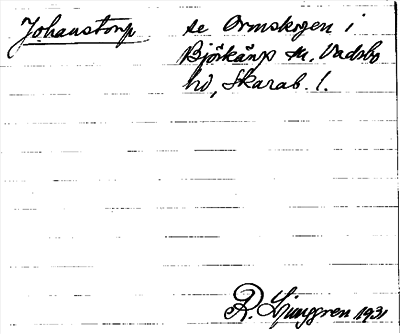 Johanstorp
se Ormskogen i
Björkäng sn. Vadsbo
hd, Skarab. l.
R. Ljunggren 1931